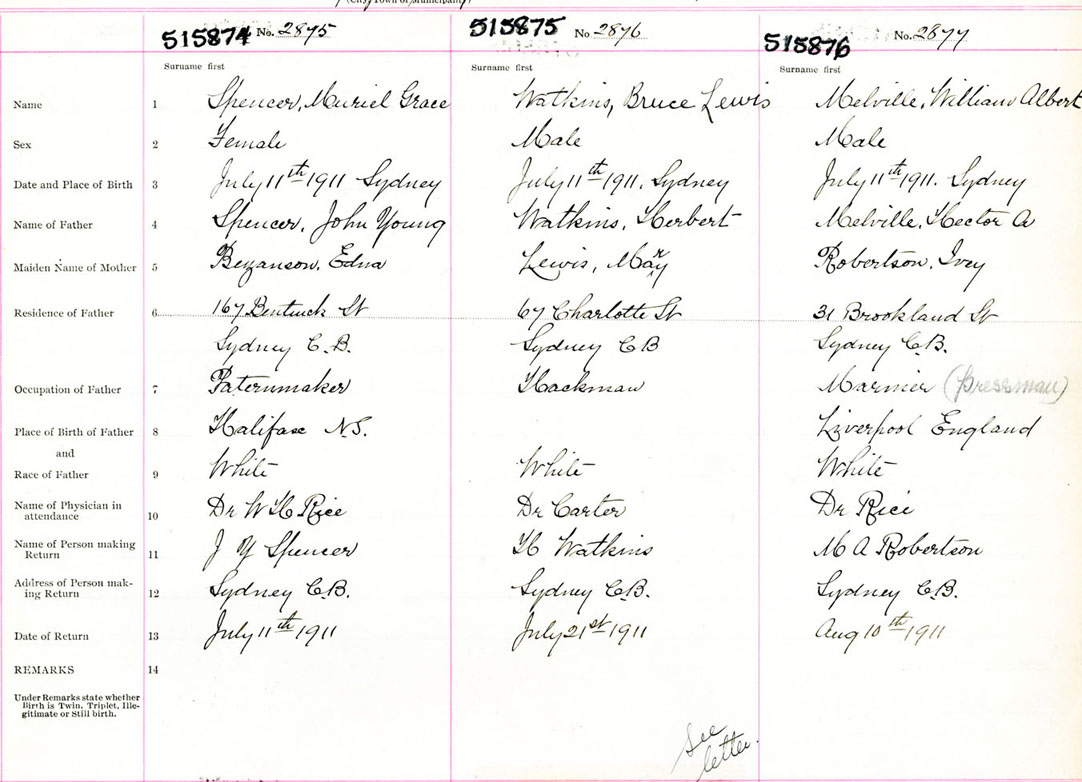 (City, Town or Municipality)
515874 No. 2875 515875 No. 2876 515876 No. 2877
Surname first Surname first Surname first
Name 1 Spencer, Muriel Grace Watkins, Bruce Lewis Melville, William Albert
Sex 2 Female Male Male
Date and Place of Birth 3 July 11th 1911 Sydney July 11th 1911, Sydney July 11th 1911. Sydney
Name of Father 4 Spencer, John Young Watkins, Herbert Melville, Hector A
Maiden Name of Mother 5 Bezanson, Edna Lewis, Mary Robertson, Ivey
Residence of Father 6 167 Bentinck St 67 Charlotte St 31 Brookland St
Sydney C.B. Sydney C B Sydney C.B.
Occupation of Father 7 Paternmaker Hackman Marnier (pressman)
Place of Birth of Father 8 Halifax N.S. Liverpool England
and
Race of Father 9 White White White
Name of Physician in
attendance 10 Dr W H Rice Dr Carter Dr Rice
Name of Person making
Return 11 J Y Spencer H Watkins M A Robertson
Address of Person mak-
ing Return 12 Sydney C.B. Sydney C.B. Sydney C.B.
Date of Return 13 July 11th 1911 July 21st 1911 Aug 10th 1911
REMARKS 14
Under Remarks state whether
Birth is Twin, Triplet, Ille-
gitimate or Still birth.
See
letter.